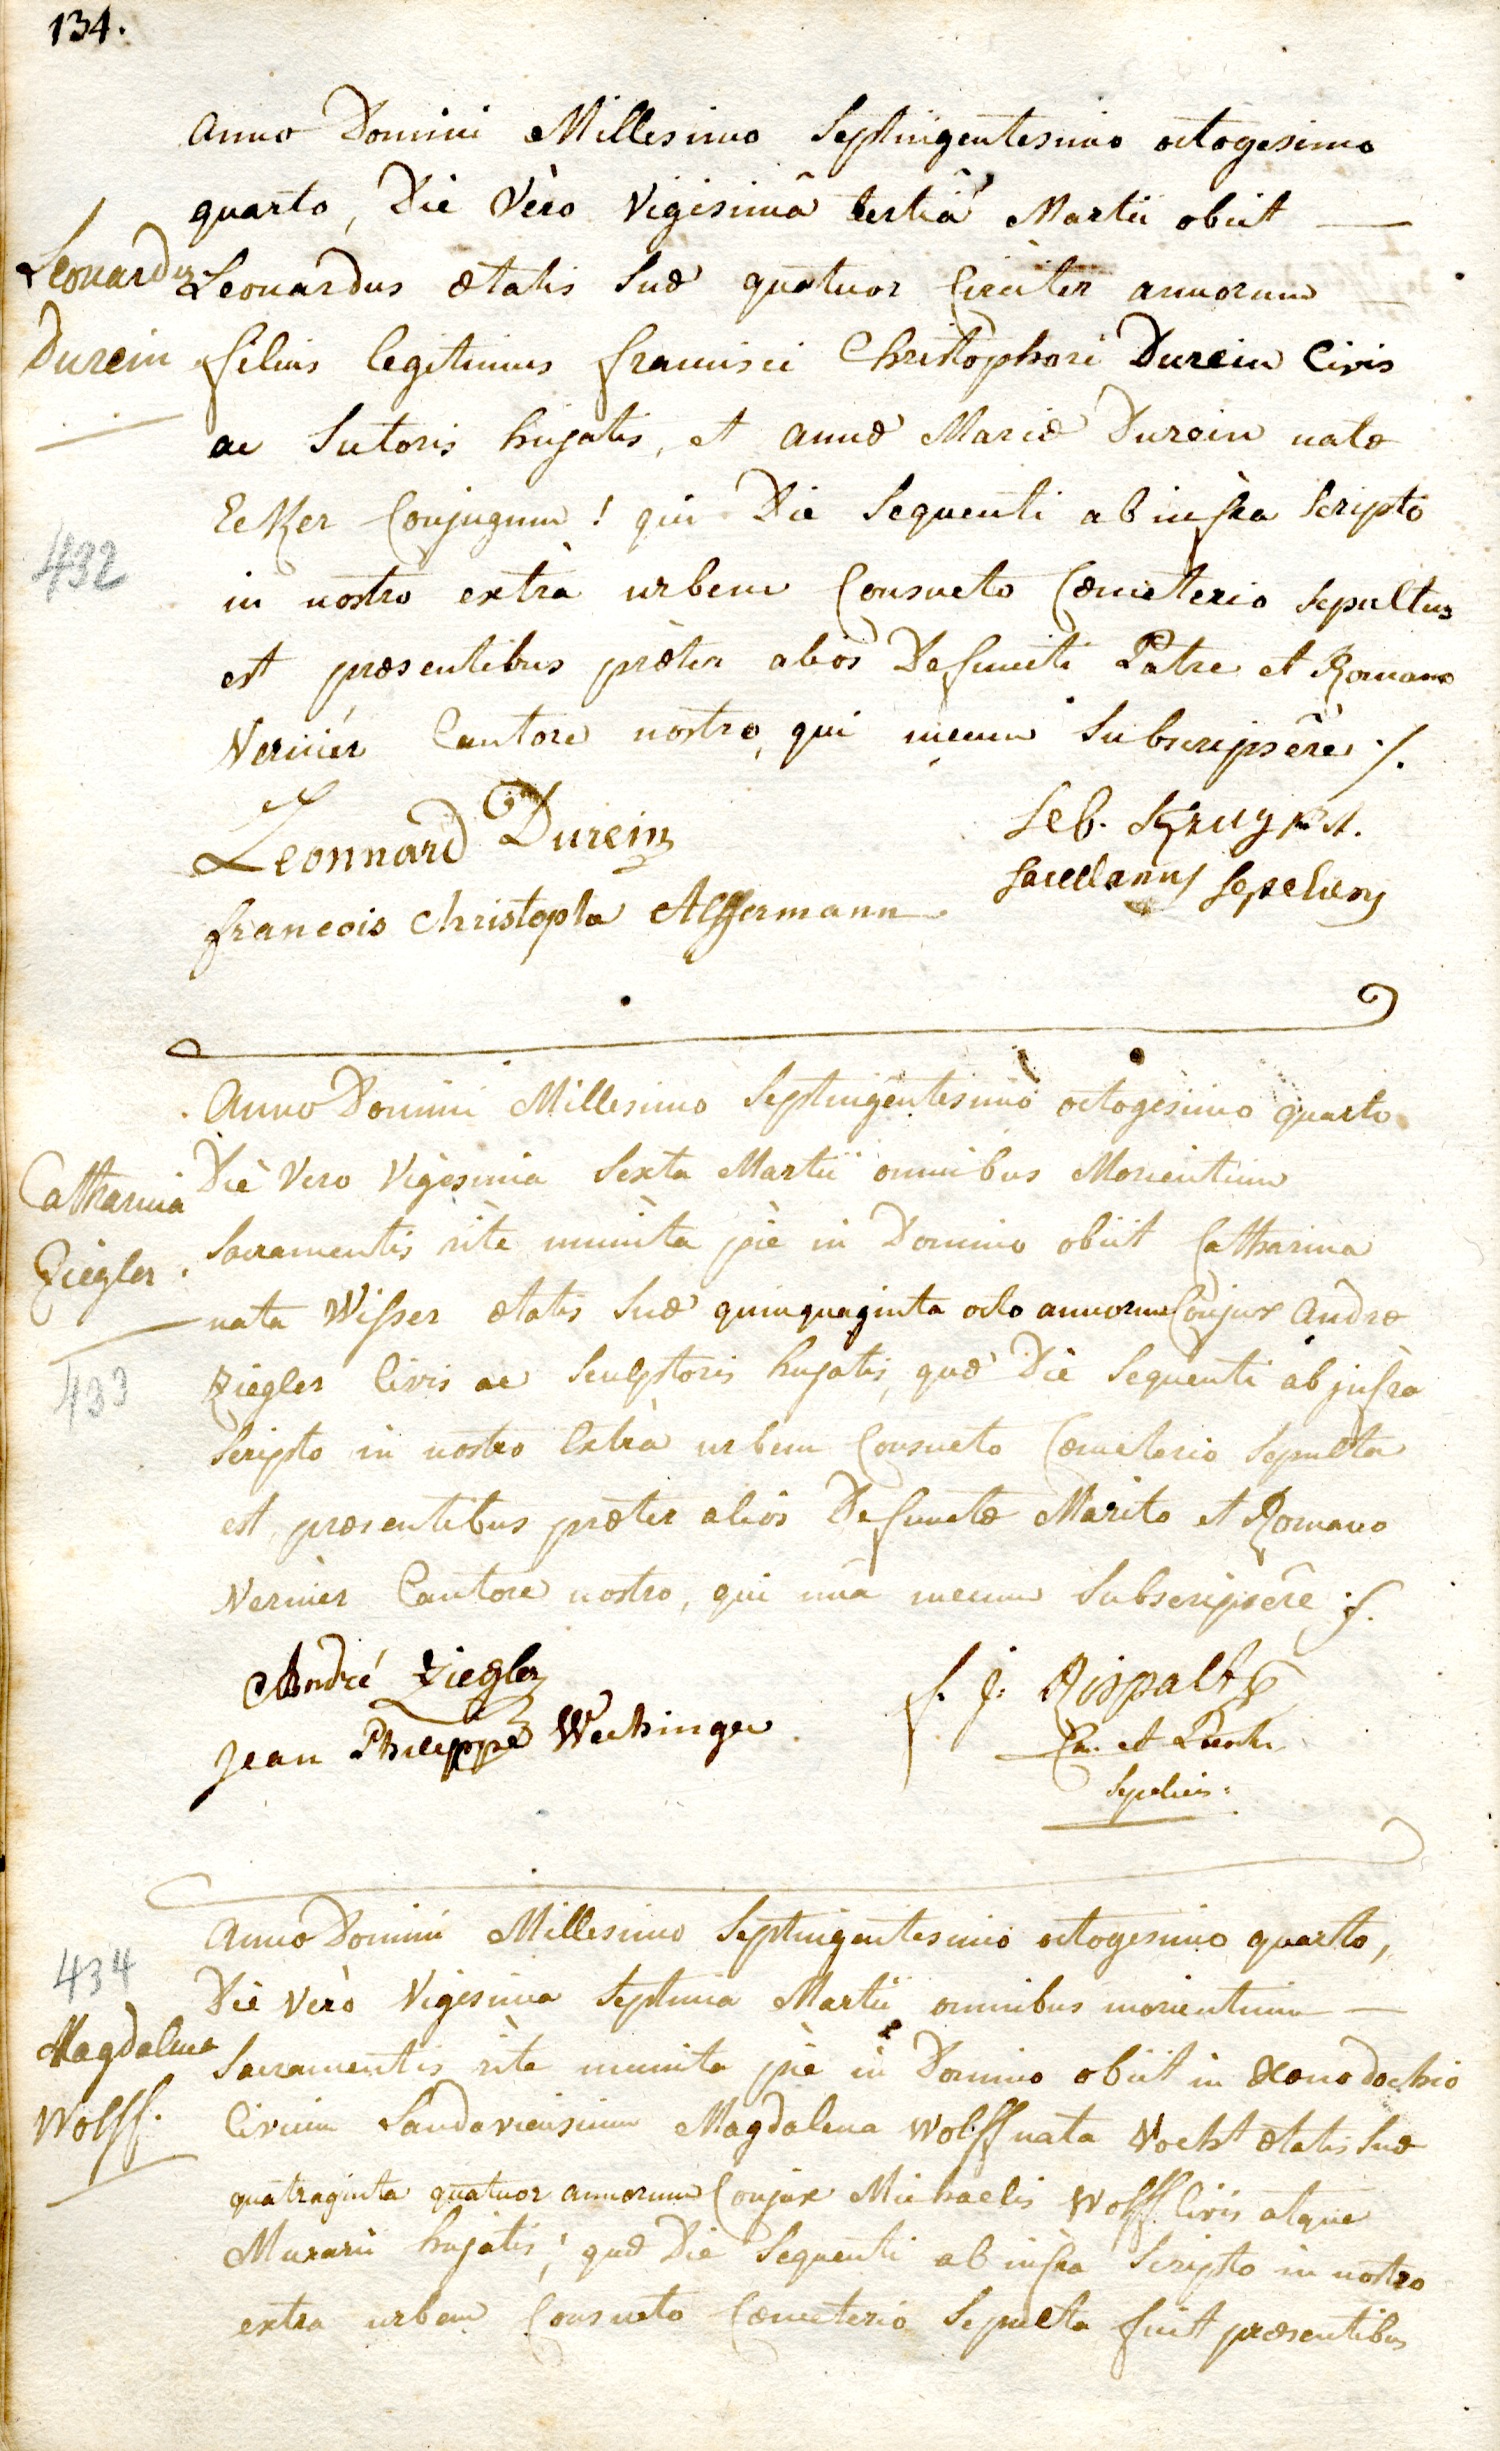 134.
Anno Domini Millesimo Septingentesimo octogesimo
quarto, Die Vèro Vigesimâ tertiâ Martii obiit —
Leonardus
Leonardus ætatis Suæ quatuor Circiter annorum —
Durein
filius legitimus francisci Christophori Durein Civis
ac Sutoris hujatis, et annæ Mariæ Durein natæ
Ecker Conjugum! qui Die Sequenti ab infra Scripto
432
in nostro extrà urbem Consueto Cœmeterio Sepultus
est præsentibus præter aliòs Defuncti Patre et Romano
Vernier Cantore nostro, qui mecum Subscripsêre ./.
Leonnard Durein
Seb. Krug
Sacellanus Sepeliens
francois Christopla Assermann
Anno Domini Millesimo Septingentesimò octogesimo quarto
Diè Vero Vigesima Sexta Martii omnibus Morientium
Catharina
Sacramentis ritè munita piè in Domino obiit Catharina
Ziegler.
nata Wisser ætatis Suæ quinquaginta octo annorum Conjux Andræ
433
Ziegler Civis ac Sculptoris hujatis, quæ Die Sequenti ab infrà
Scripto in nostro Extrà urbem Consueto Cœmeterio Sepulta
est præsentibus præter aliòs Defunctæ Marito et Romano
Vernier Cantore nostro, qui unà mecum Subscripsêre ./.
André Ziegler
f. j. Rispalt
Jean Philippe Wechinger
Can. et
Sepeliens
Anno Domini Millesimo Septingentesimo octogesimo quarto,
434
Diè Verò Vigesima Septima Martii omnibus morientium —
Magdalena
Sacramentis ritè munita piè in Domino obiit in Xenodochio
Wolff.
Civium Landaviensium Magdalena Wolff nata Vocht ætatis Suæ
quatraginta quatuor annorum Conjux Michaelis Wolff Civis atque
Murarii hujatis; quæ Die Sequenti ab infrà Scripto in nostro
extra urbem Consueto Cœmeterio Sepulta fuit præsentibus